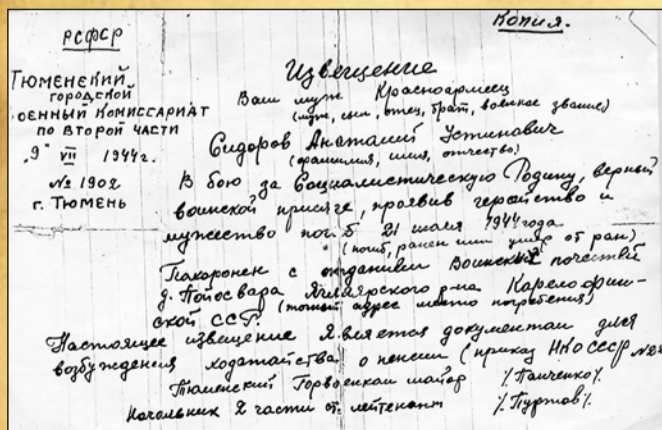 Копия.
РСФСР
Тюменский
городской
оенный Комиссариат
по Второй части
"9" VII 1944г.
№ 1902
г. Тюмень
Извещение
Ваш муж Красноармеец
(муж, сын, отец, брат, военное звание)
Сидоров Анатолий Устинович
(фамилия, имя, отчество)
В бою за Социалистическую Родину, верный
воинской присяге, проявив геройство и
мужество погиб 21 1944 года
(погиб, ранен или умер от ран)
Похоронен с отданием Воинских почестей
д. Ягляярского р-на Карелофин-
ской ССР. (точный адрес место погребения)
Настоящее извещение является документом для
возбуждения ходатайства о пенсии (приказ НКО СССР №
Тюменский Горвоенком майор /Панченко/.
Начальник 2 части ст. лейтенант /Пуртов/.